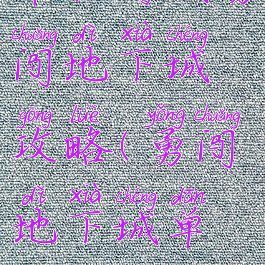 chuǎng dì xià chéng
闯地下城
gōng lüè yǒng chuǎng
攻略(勇闯
dì xià chéng dān
地下城单